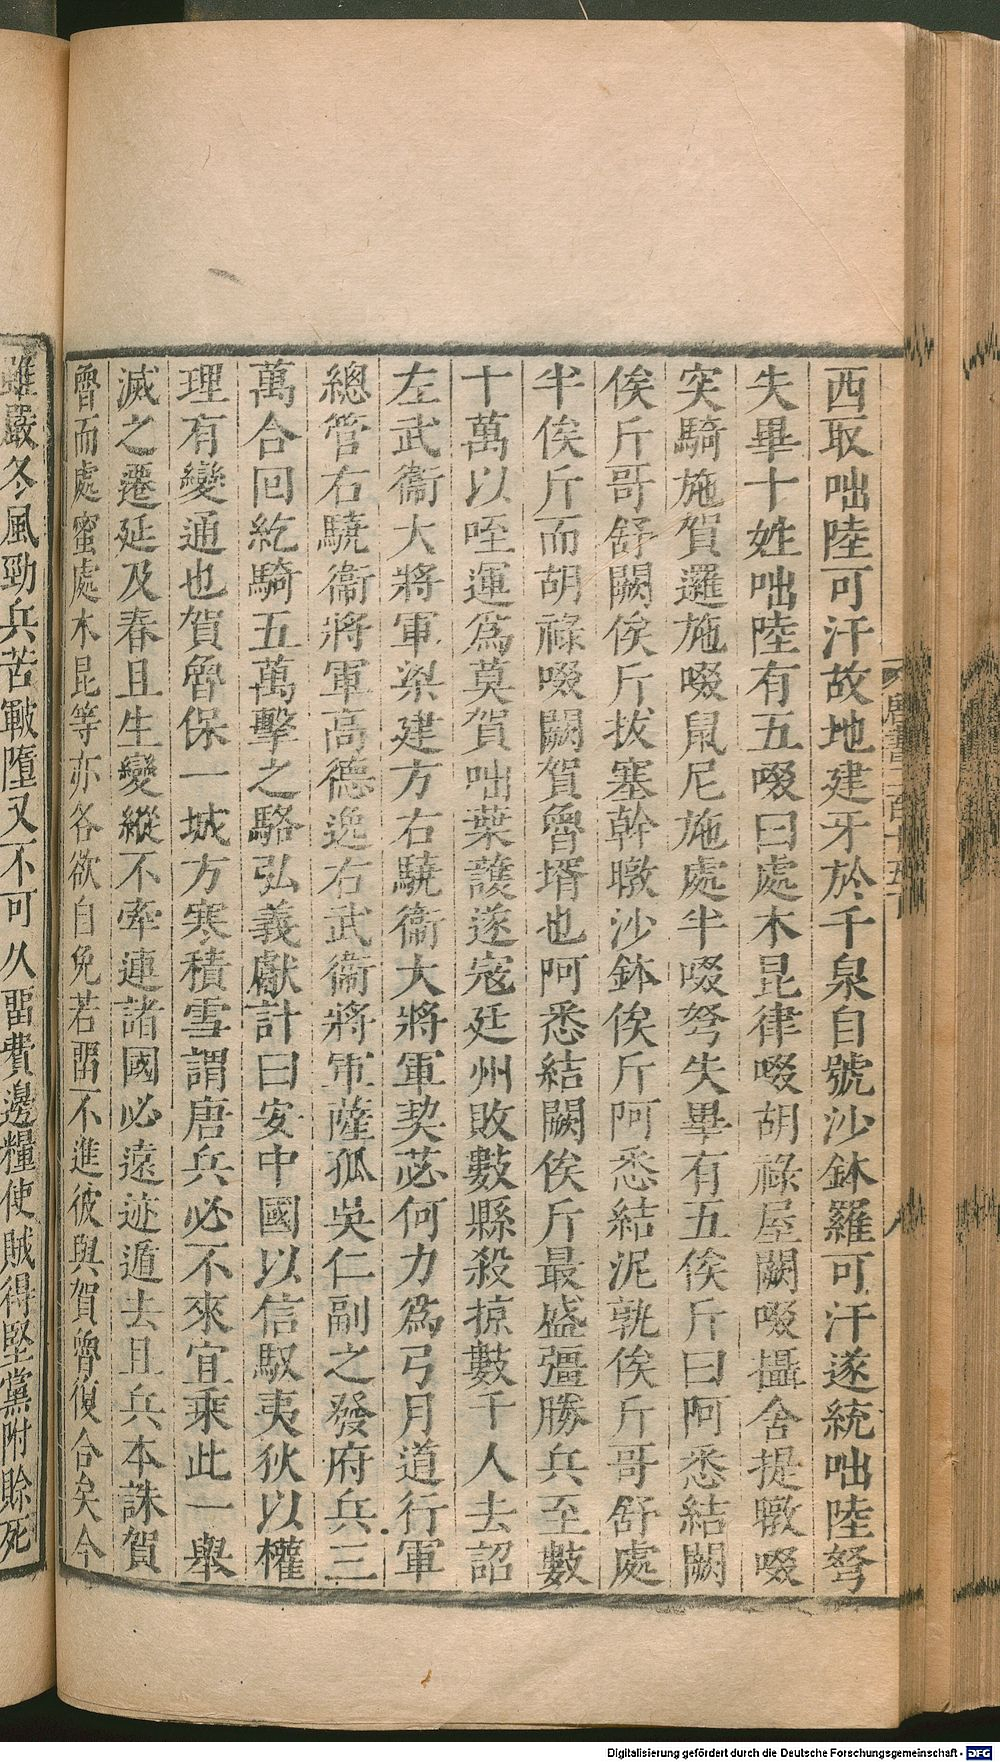 西取咄陸可汗故地建牙於千泉自號沙鉢羅可汗遂統咄陸弩
失畢十姓咄陸有五啜曰處木昆律啜胡祿屋闕啜攝舍提暾啜
突騎施賀邏施啜鼠尼施處半啜弩失畢有五俟斤曰阿悉結闕
俟斤哥舒闕俟斤拔塞幹暾沙鉢俟斤阿悉結泥孰俟斤哥舒處
半俟斤而胡祿啜闕賀魯壻也阿悉結闕俟斤最盛彊勝兵至數
十萬以咥運爲莫賀咄葉護遂寇廷州敗數縣殺掠數千人去詔
左武衞大將軍梁建方右驍衞大將軍契苾何力爲弓月道行軍
總管右驍衞將軍高德逸右武衞將軍薩孤吳仁副之發府兵三
萬合回紇騎五萬擊之駱弘義獻計曰安中國以信馭夷狄以權
理有變通也賀魯保一城方寒積雪謂唐兵必不來宜乘此一舉
滅之遷延及春且生變縱不牽連諸國必遠迹遁去且兵本誅賀
魯而處蜜處木昆等亦各欲自免若畱不進彼與賀魯復合矣今
雖嚴冬風勁兵苦皸墮又不可久畱費邊糧使賊得堅黨附賒死
唐書二百十五下
八
Digitalisierung gefördert durch die Deutsche Forschungsgemeinschaft - DFG